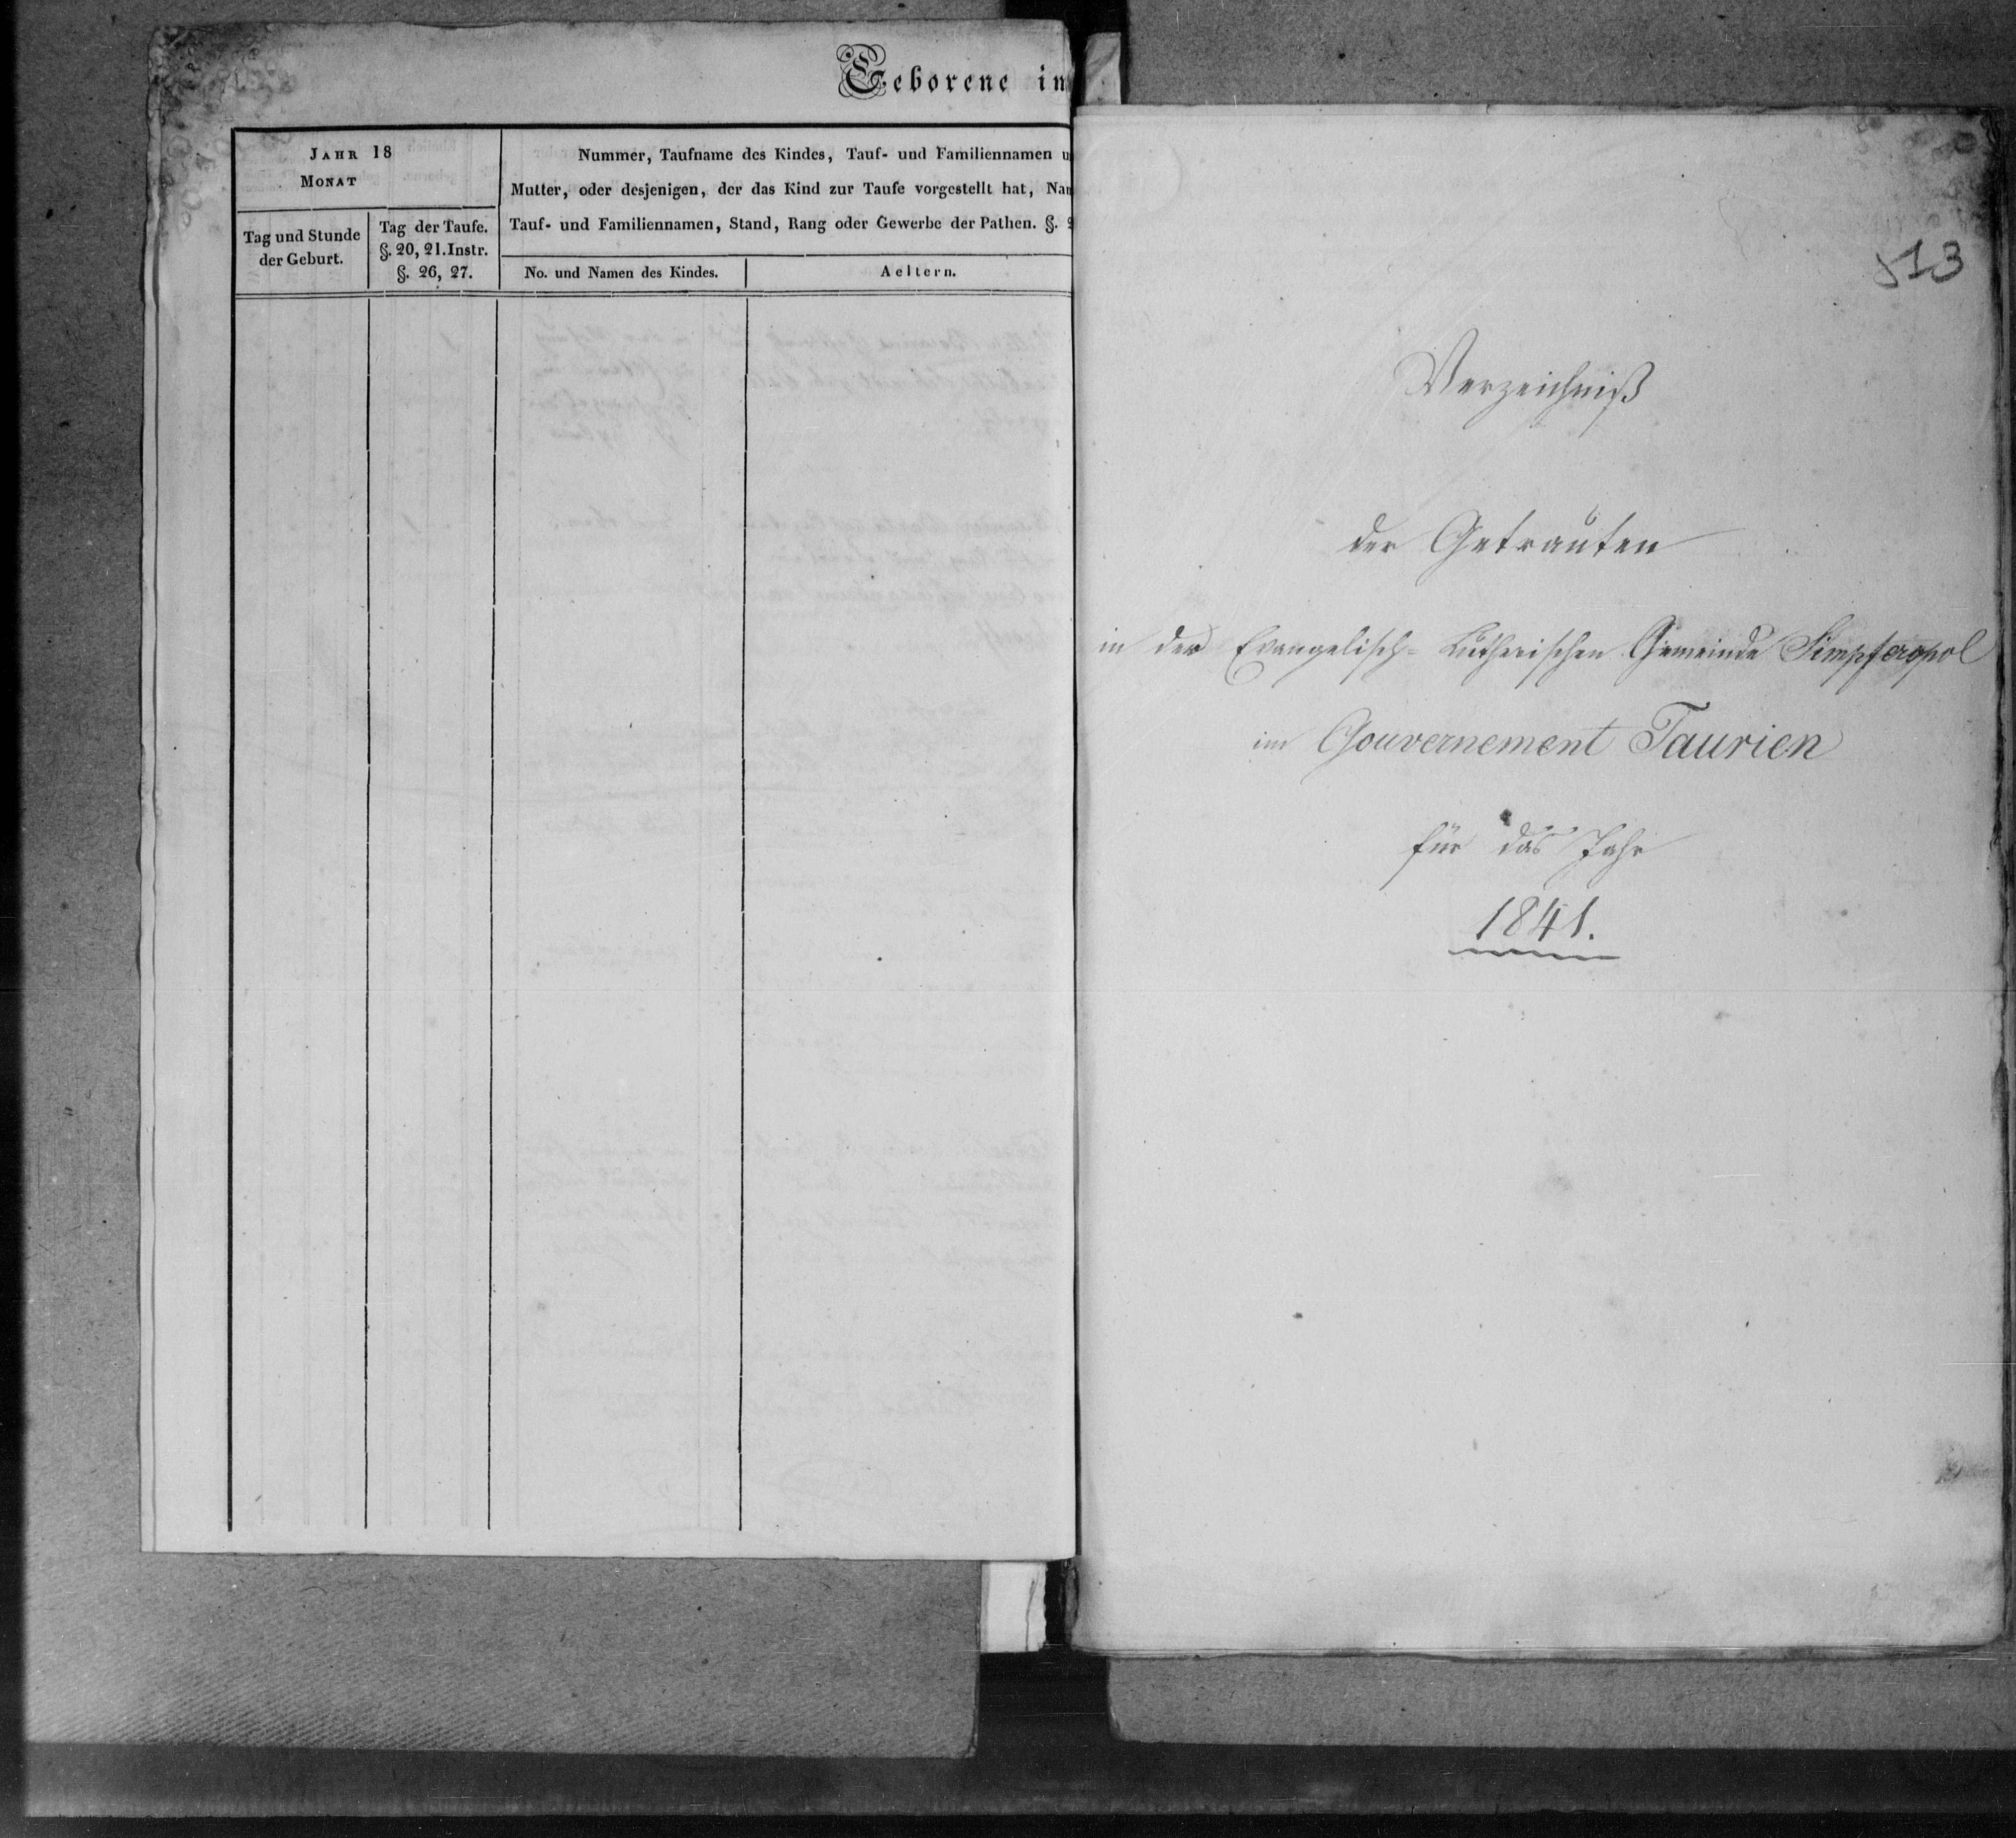 Geborene im
JAHR 18
MONAT
Nummer, Taufname des Kindes, Tauf- und Familiennamen u
Mutter, oder desjenigen, der das Kind zur Taufe vorgestellt hat, Nam
Tauf- und Familiennamen, Stand, Rang oder Gewerbe der Pathen. §. 2
Tag und Stunde
der Geburt.
Tag der Taufe.
§. 20, 21. Instr.
§. 26, 27.
No. und Namen des Kindes.
Aeltern.
513
Verzeichniß
der Getrauten
in der Evangelisch= Lutherischen Gemeinde Simpferopol
im Gouvernement Taurien
für das Jahr
1841.